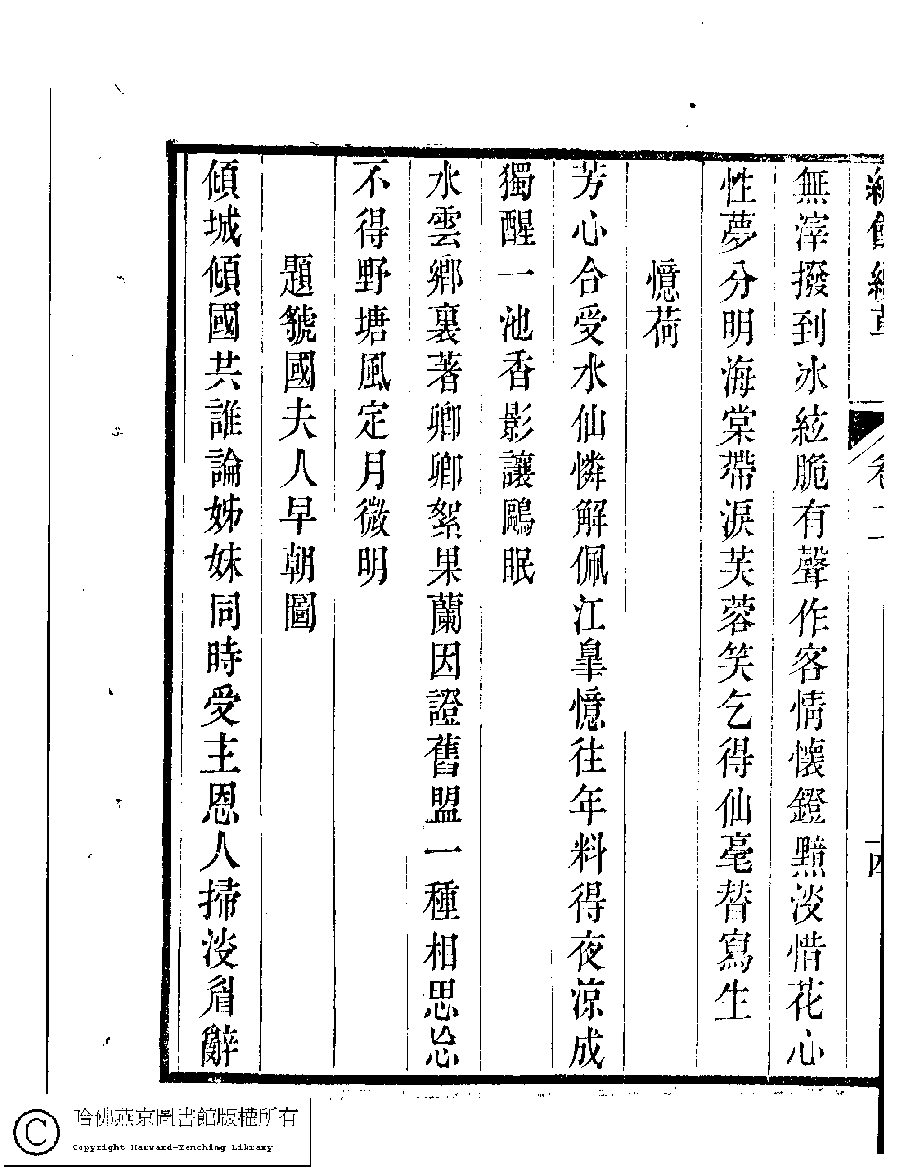 無滓撥到冰絃脆有聲作客情懷鐙黯淡惜花心
性夢分明海棠帶淚芙蓉笑乞得仙毫替寫生
憶荷
芳心合受水仙憐解佩江臯憶往年料得夜涼成
獨醒一池香影讓鷗眠
水雲鄉裏著卿卿絮果蘭因證舊盟一種相思忘
不得野塘風定月微明
題虢國夫人早朝圖
傾城傾國共誰論姊妹同時受主恩人掃淡眉辭
哈佛燕京圖書館版權所有
Copyright Harvard-Yenching Library